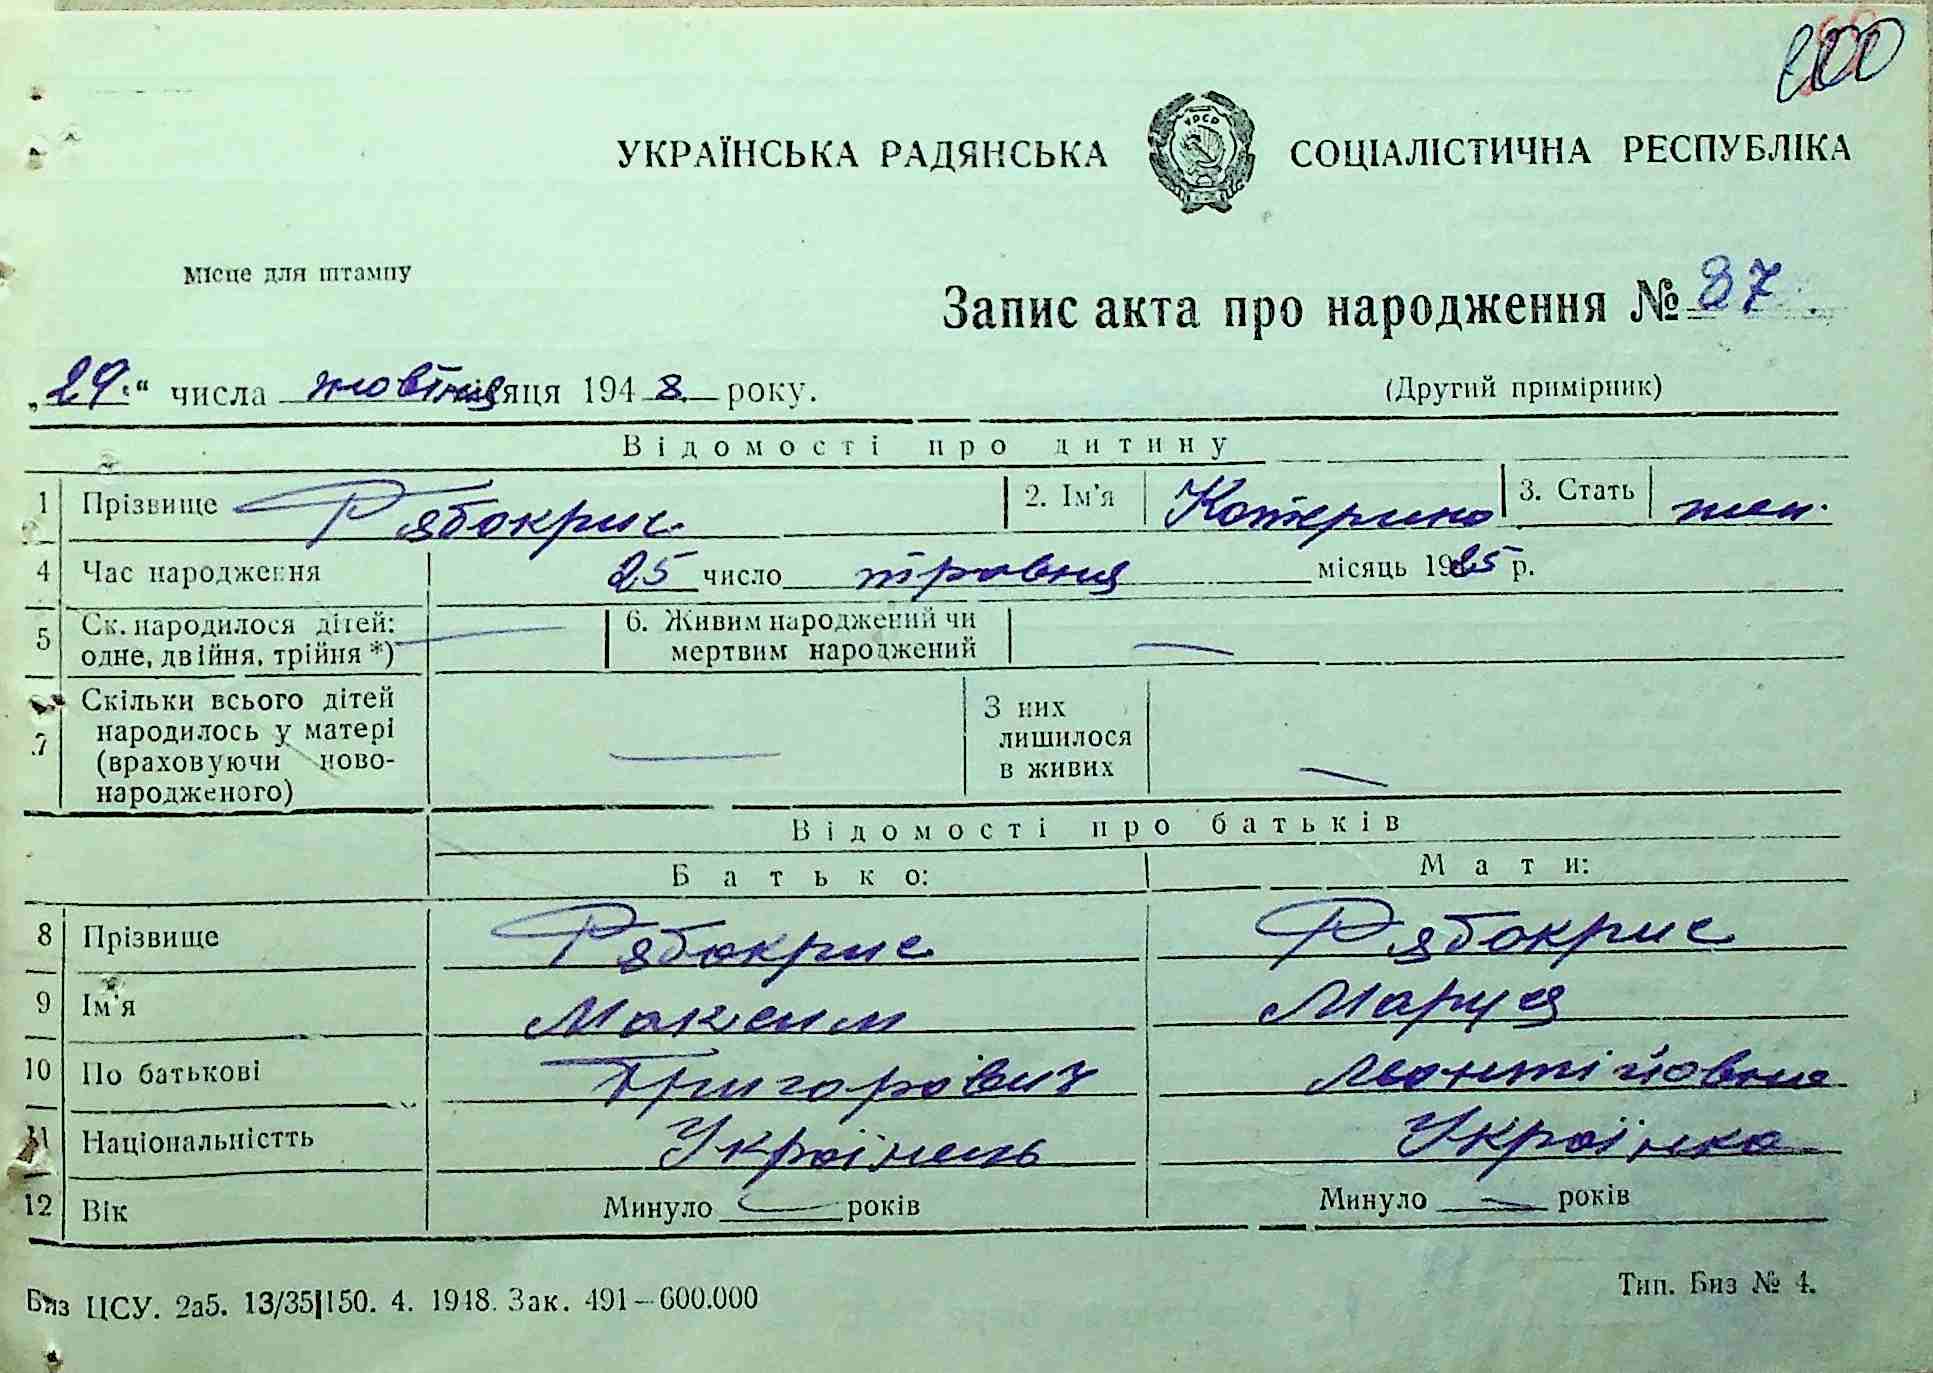 200
УРСР
УКРАЇНСЬКА РАДЯНСЬКА СОЦІАЛІСТИЧНА РЕСПУБЛІКА
Місце для штампу
Запис акта про народження № 87.
„29.“ числа жовтня місяця 1948. року.
(Другий примірник)
Відомості про дитину
1 Прізвище Рябокрис 2. Ім'я Катерина 3. Стать жен.
4 Час народження 25 число травня місяць 1925 р.
5 Ск. народилося дітей: одне, двійня, трійня *) — 6. Живим народжений чи мертвим народжений —
7 Скільки всього дітей народилось у матері (враховуючи ново-народженого) — З них лишилося в живих —
Відомості про батьків
Батько: Мати:
8 Прізвище Рябокрис Рябокрис
9 Ім'я Максим Маруся
10 По батькові Григорович Леонтійовна
11 Національністть Українець Українка
12 Вік Минуло — років Минуло — років
Биз ЦСУ. 2а5. 13/35|150. 4. 1948. Зак. 491—600.000
Тип. Биз № 4.